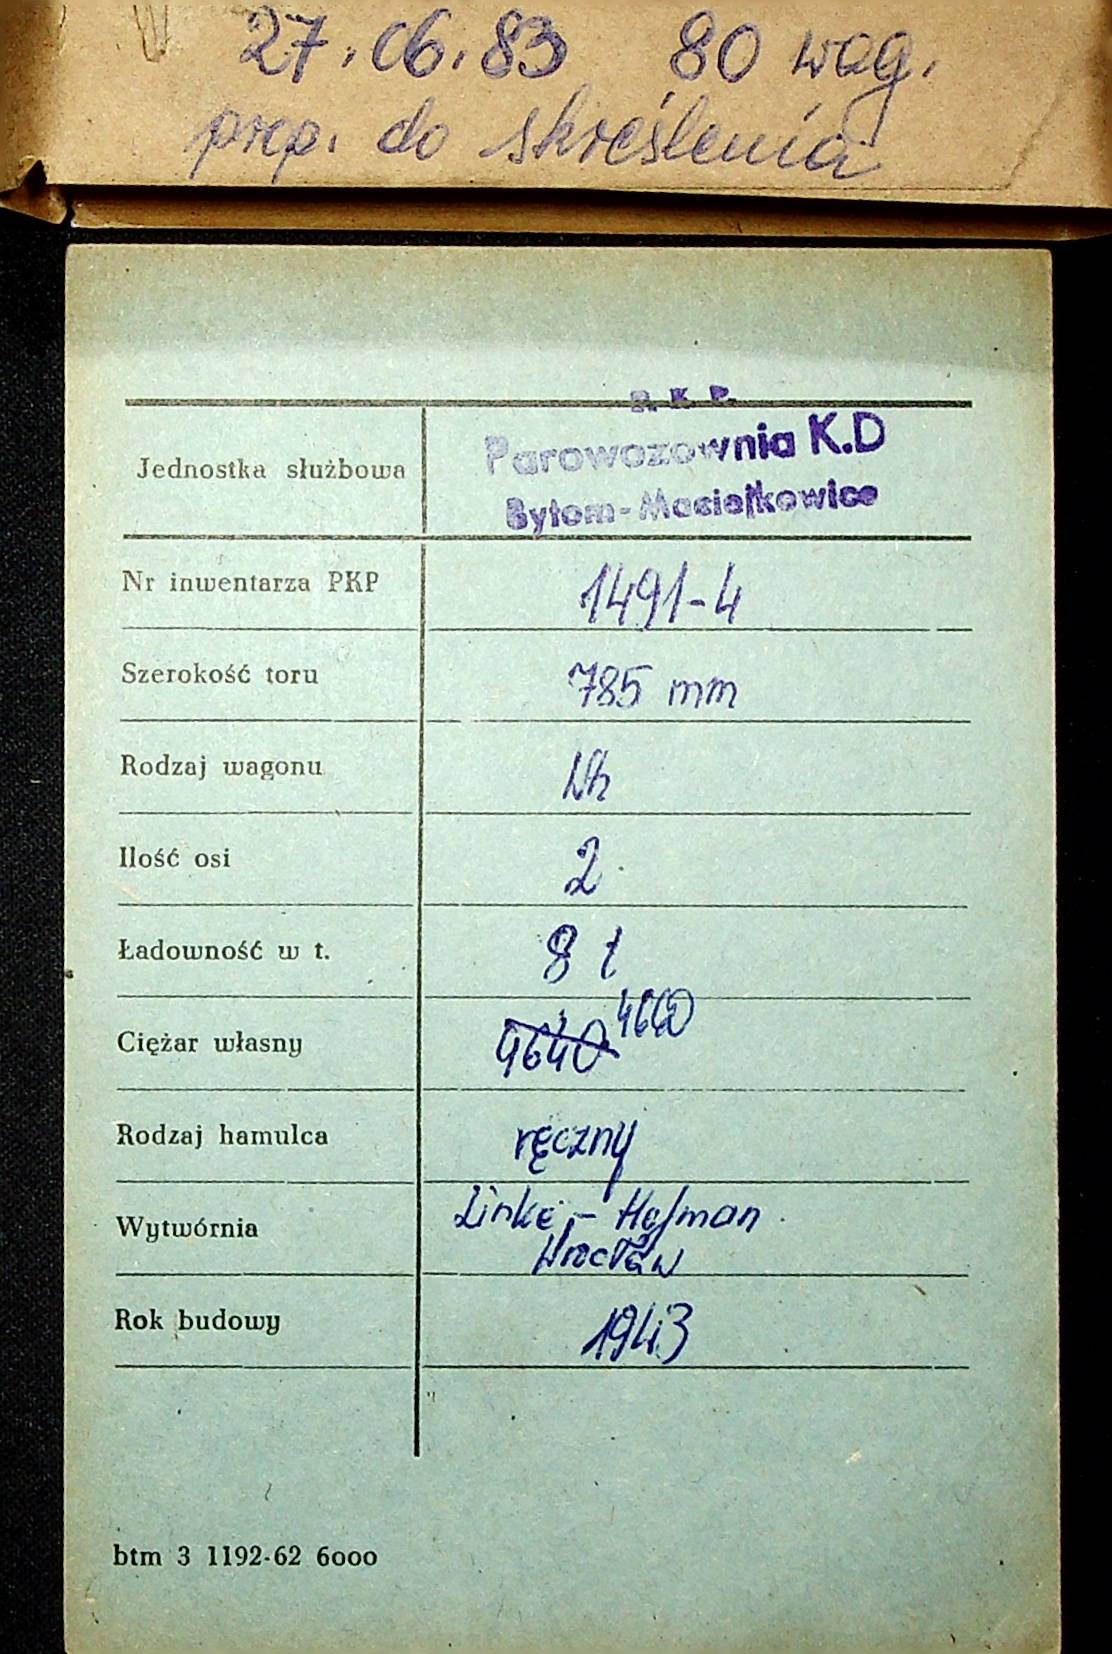 27.06.83 80 wag.
prop. do skreślenia
P. K. P.
Parowozownia K.D
Bytom-Maciejkowice
Jednostka służbowa
Nr inwentarza PKP 1491-4
Szerokość toru 785 mm
Rodzaj wagonu Wh
Ilość osi 2
Ładowność w t. 8 t
Ciężar własny 4640 4660
Rodzaj hamulca ręczny
Wytwórnia Linke - Hofman
Wrocław
Rok budowy 1943
btm 3 1192-62 6000